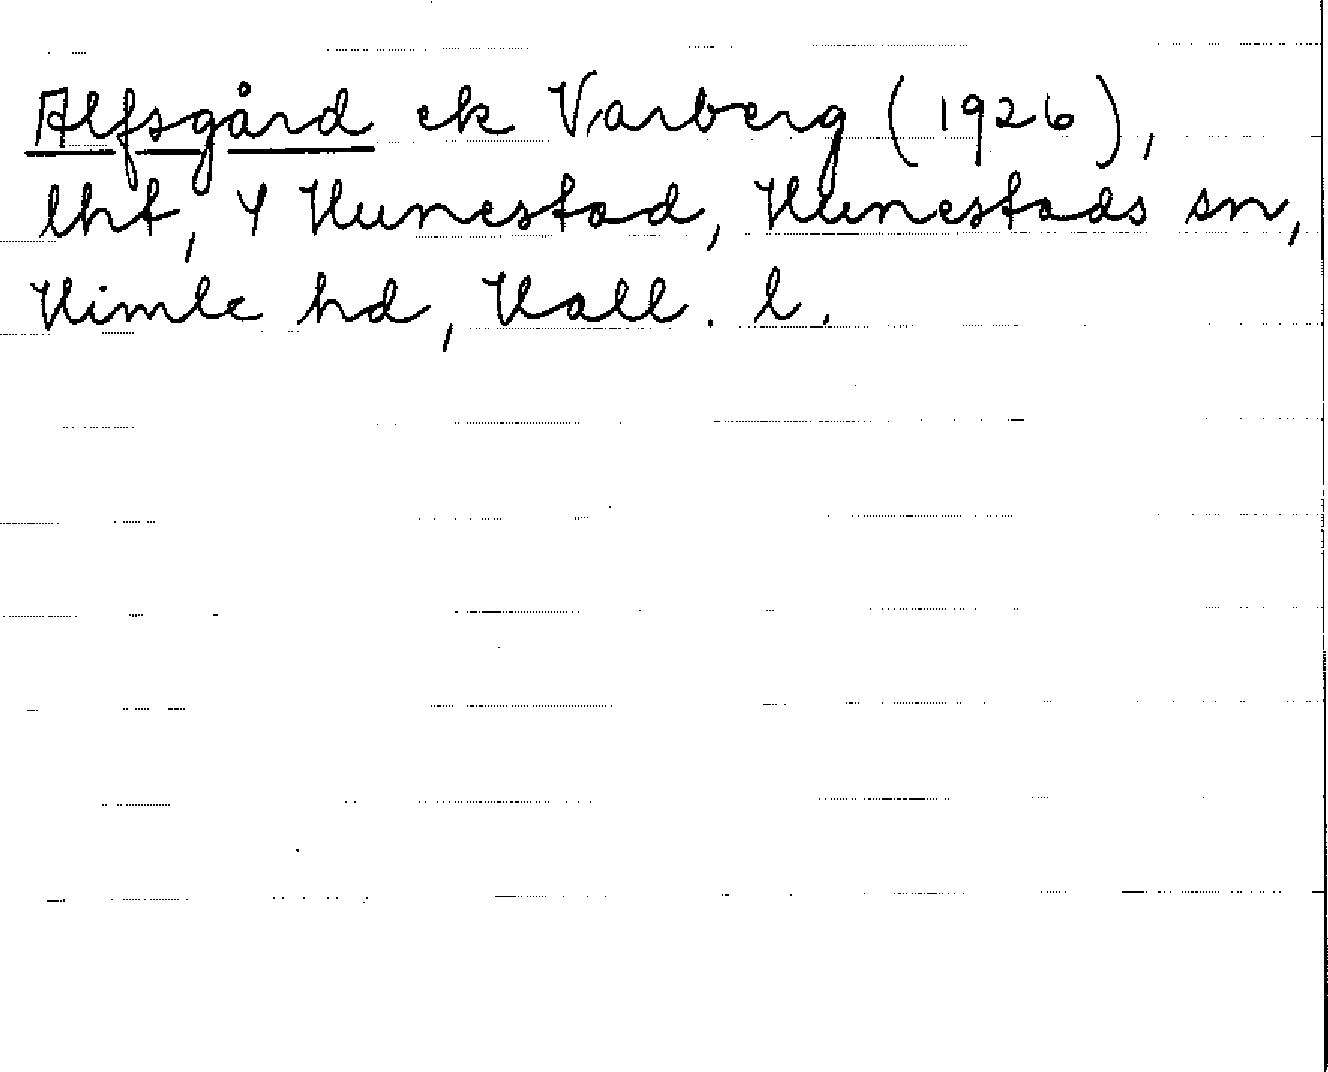 Alfsgård ek Varberg (1926),
lht, Y Hunestad, Hunestads sn,
Himle hd, Hall. l.